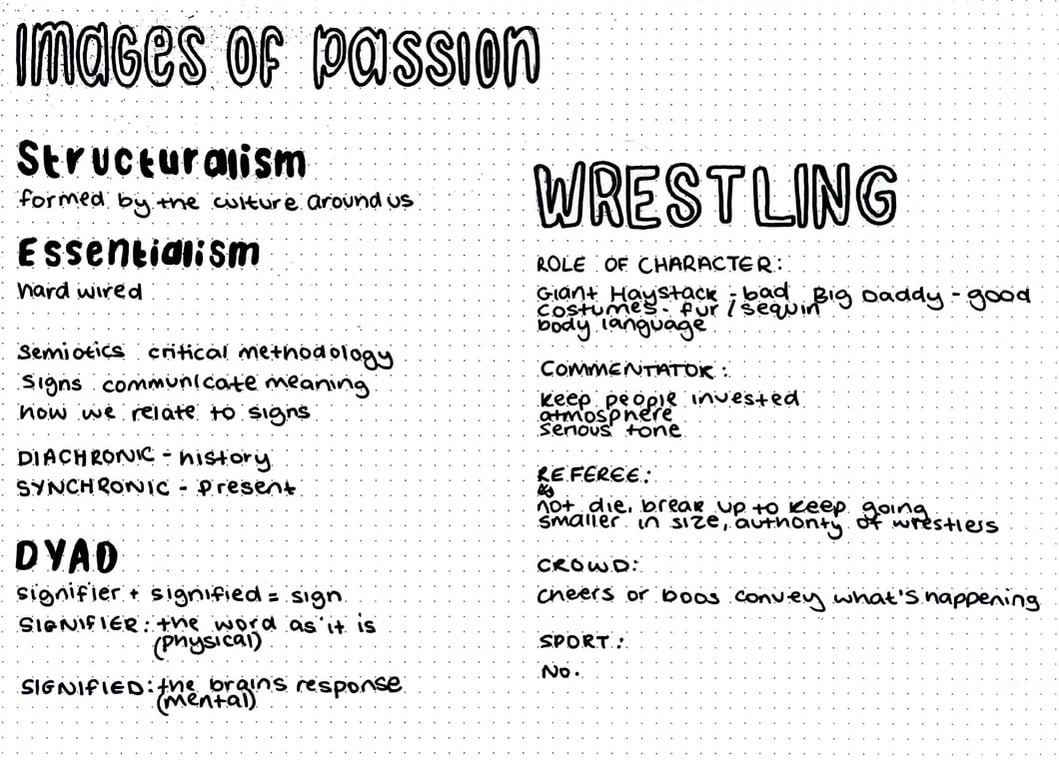 Images of passion
Structuralism
formed by the culture around us
Essentialism
hard wired
Semiotics critical methodology
Signs communicate meaning
how we relate to signs
DIACHRONIC - history
SYNCHRONIC - present
DYAD
signifier + signified = sign
SIGNIFIER: the word as it is
(physical)
SIGNIFIED: the brains response
(mental)
WRESTLING
ROLE OF CHARACTER:
Giant Haystack - bad Big Daddy - good
costumes - fur / sequin
body language
COMMENTATOR:
keep people invested
atmosphere
serious tone
REFEREE:
not die, break up to keep going
smaller in size, authority of wrestlers
CROWD:
cheers or boos convey what's happening
SPORT:
No.